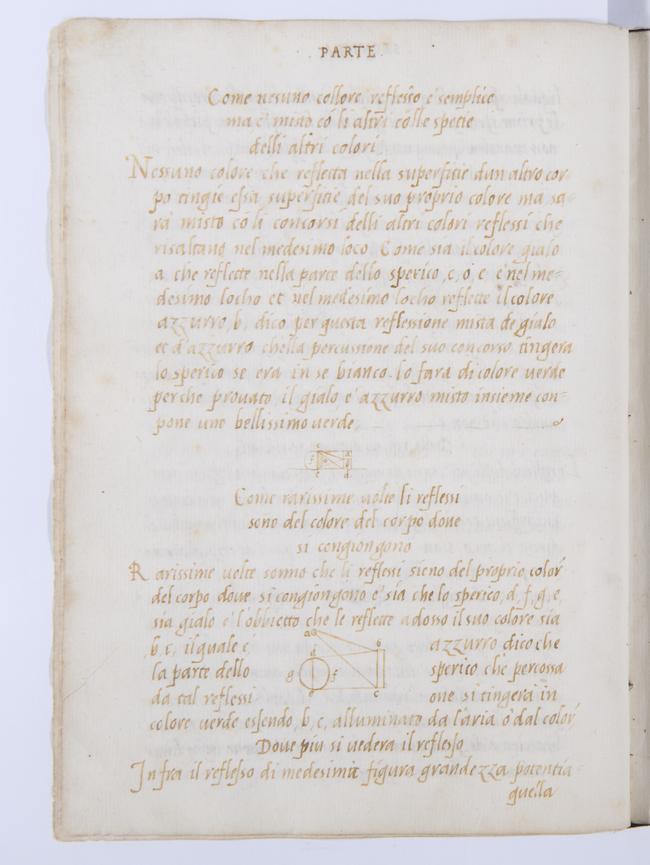 PARTE
Come nesuno collore reflesso e semplice
ma e misto có li altri cólle spetie
delli altri colori
Nessuno colore che refletta nella superfitie dun altro cor
po tingie essa superfitie del suo proprio colore ma sa
rá misto có li concorsi delli altri colori reflessi che
risaltano nel medesimo loco. Come sia il colore gialo
a, che reflette nella parte dello sperico, c, o, e, é nel me-
desimo locho et nel medesimo locho reflette il colore
azzurro, b, dico per questa reflessione mista de gialo
et d'azzurro chella percussione del suo concorso tingera
lo sperico se era in se bianco lo fara di colore uerde
perche prouato il gialo e' azzurro misto insieme con-
pone une bellissimo uerde
Come rarissime uolte li reflessi
sono del colore del corpo doue
si congiongono
Rarissime uolte sonno che li reflessi sieno del proprio color
del corpo doue si congiongono e' sia che lo sperico, d, f, g, e,
sia gialo e' l'obbietto che le reflette adosso il suo colore sia
b, c, il quale e' azzurro dico che
a
b
d
la parte dello sperico che percossa
g f
da tal reflessi one si tingera in
e c
colore uerde essendo, b, c, alluminato da l'aria ó dal color
Doue piu si uedera il reflesso
Infra il reflesso di medesima figura grandezza potentia
quella